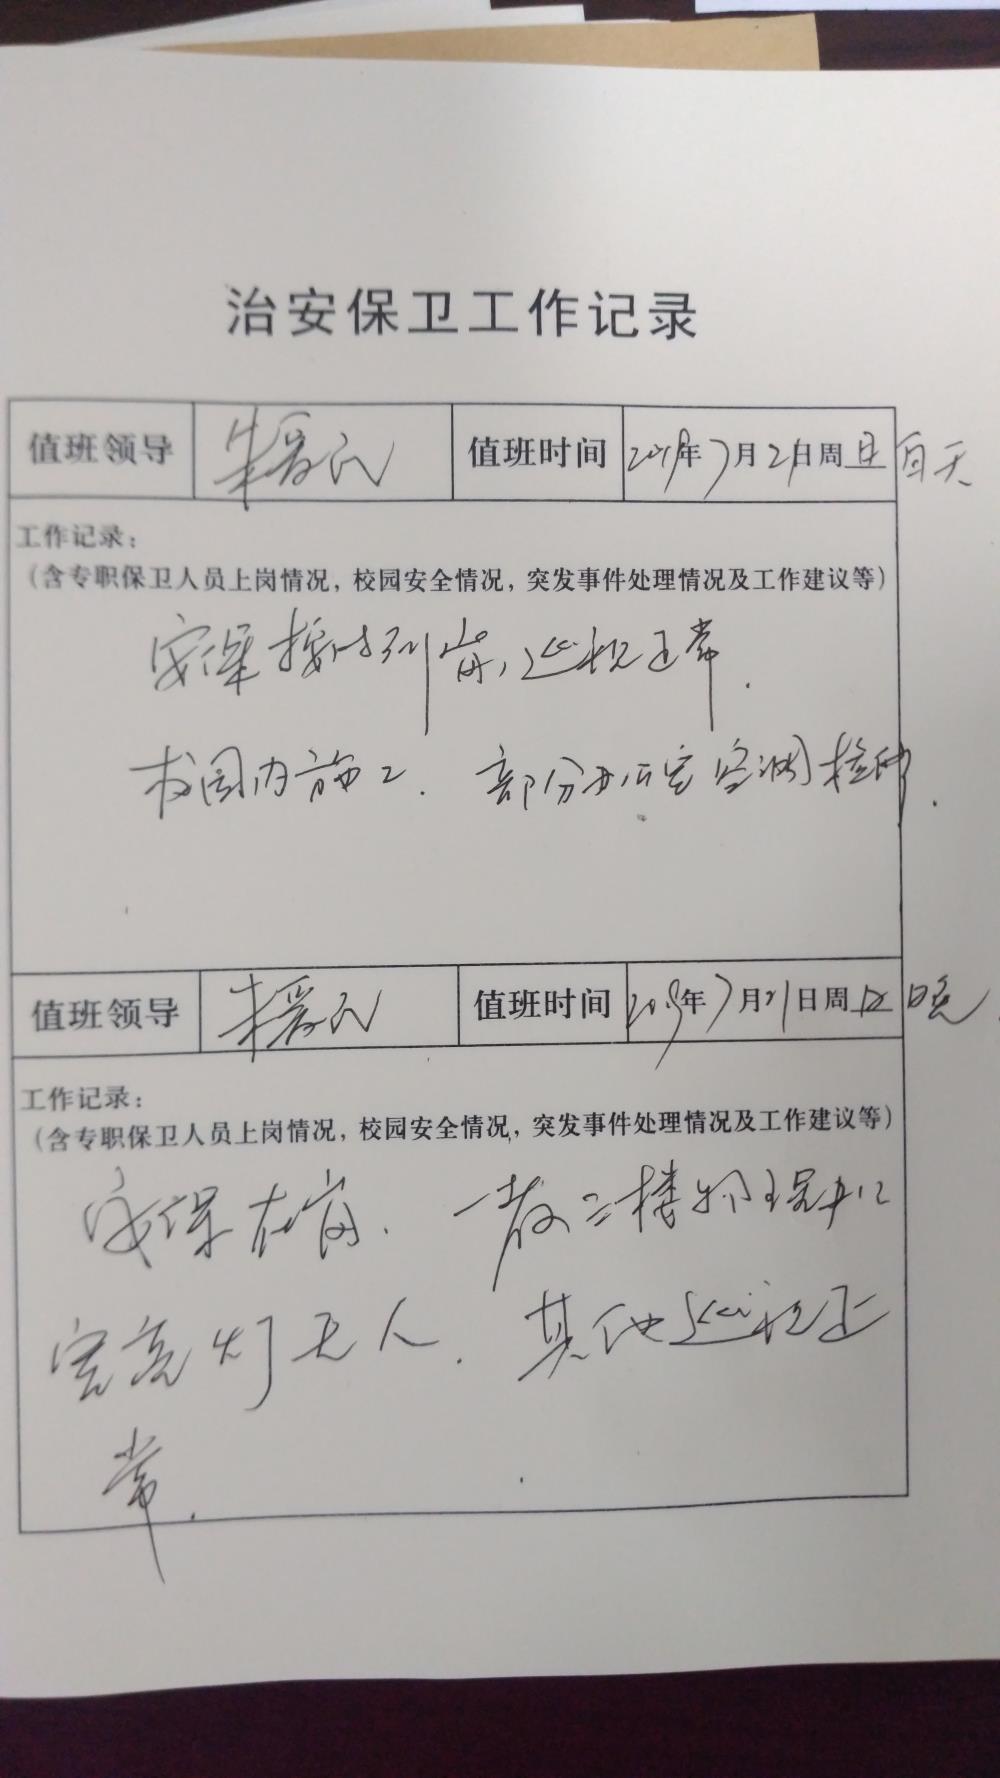 治安保卫工作记录
值班领导 朱爱民 值班时间 2019年7月21日周日 白天
工作记录：
（含专职保卫人员上岗情况，校园安全情况，突发事件处理情况及工作建议等）
安保按时到岗，巡视正常.
校园内施工. 部分办公室空调检修.
值班领导 朱爱民 值班时间 2019年7月21日周日 晚
工作记录：
（含专职保卫人员上岗情况，校园安全情况，突发事件处理情况及工作建议等）
安保在岗. 一教二楼物理办公
室亮灯无人. 其他巡视正
常.